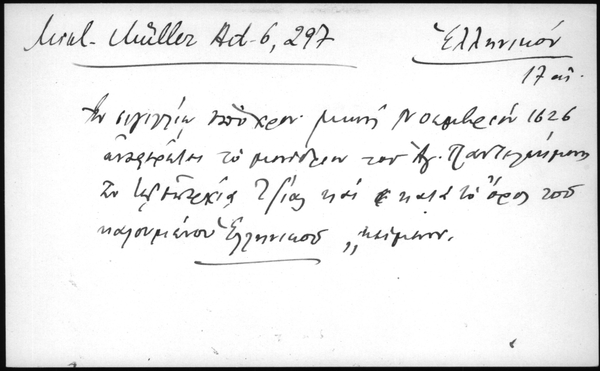 Mikl.-Müller Act. 6, 297
Ἑλληνικόν
17 αἰ.
Ἐν σιγιλλίῳ ὑπὸ χρον. μηνὶ Νοεμβρίῳ 1626
ἀναφέρεται τὸ μονύδριον τοῦ Ἁγ. Παντελεήμονος
ἐν τῇ ἐπαρχίᾳ Τζίας καὶ κατὰ τὸ ὄρος τοῦ
καλουμένου Ἑλληνικοῦ „κείμενον.